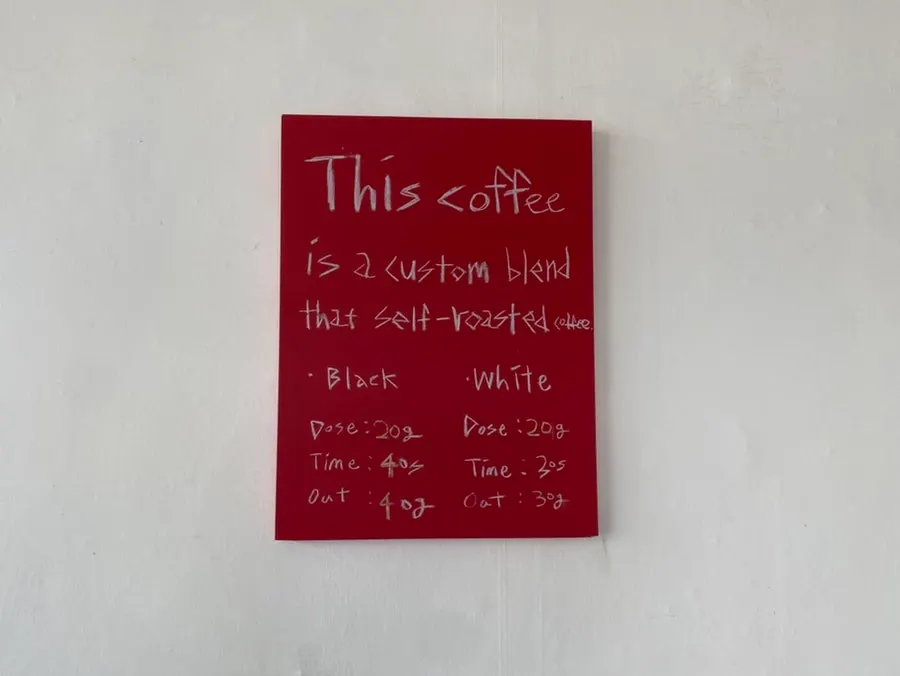 This coffee
is a custom blend
that self-roasted coffee.
· Black
Dose: 20g
Time: 40s
Out : 40g
· White
Dose: 20g
Time: 30s
Out : 30g